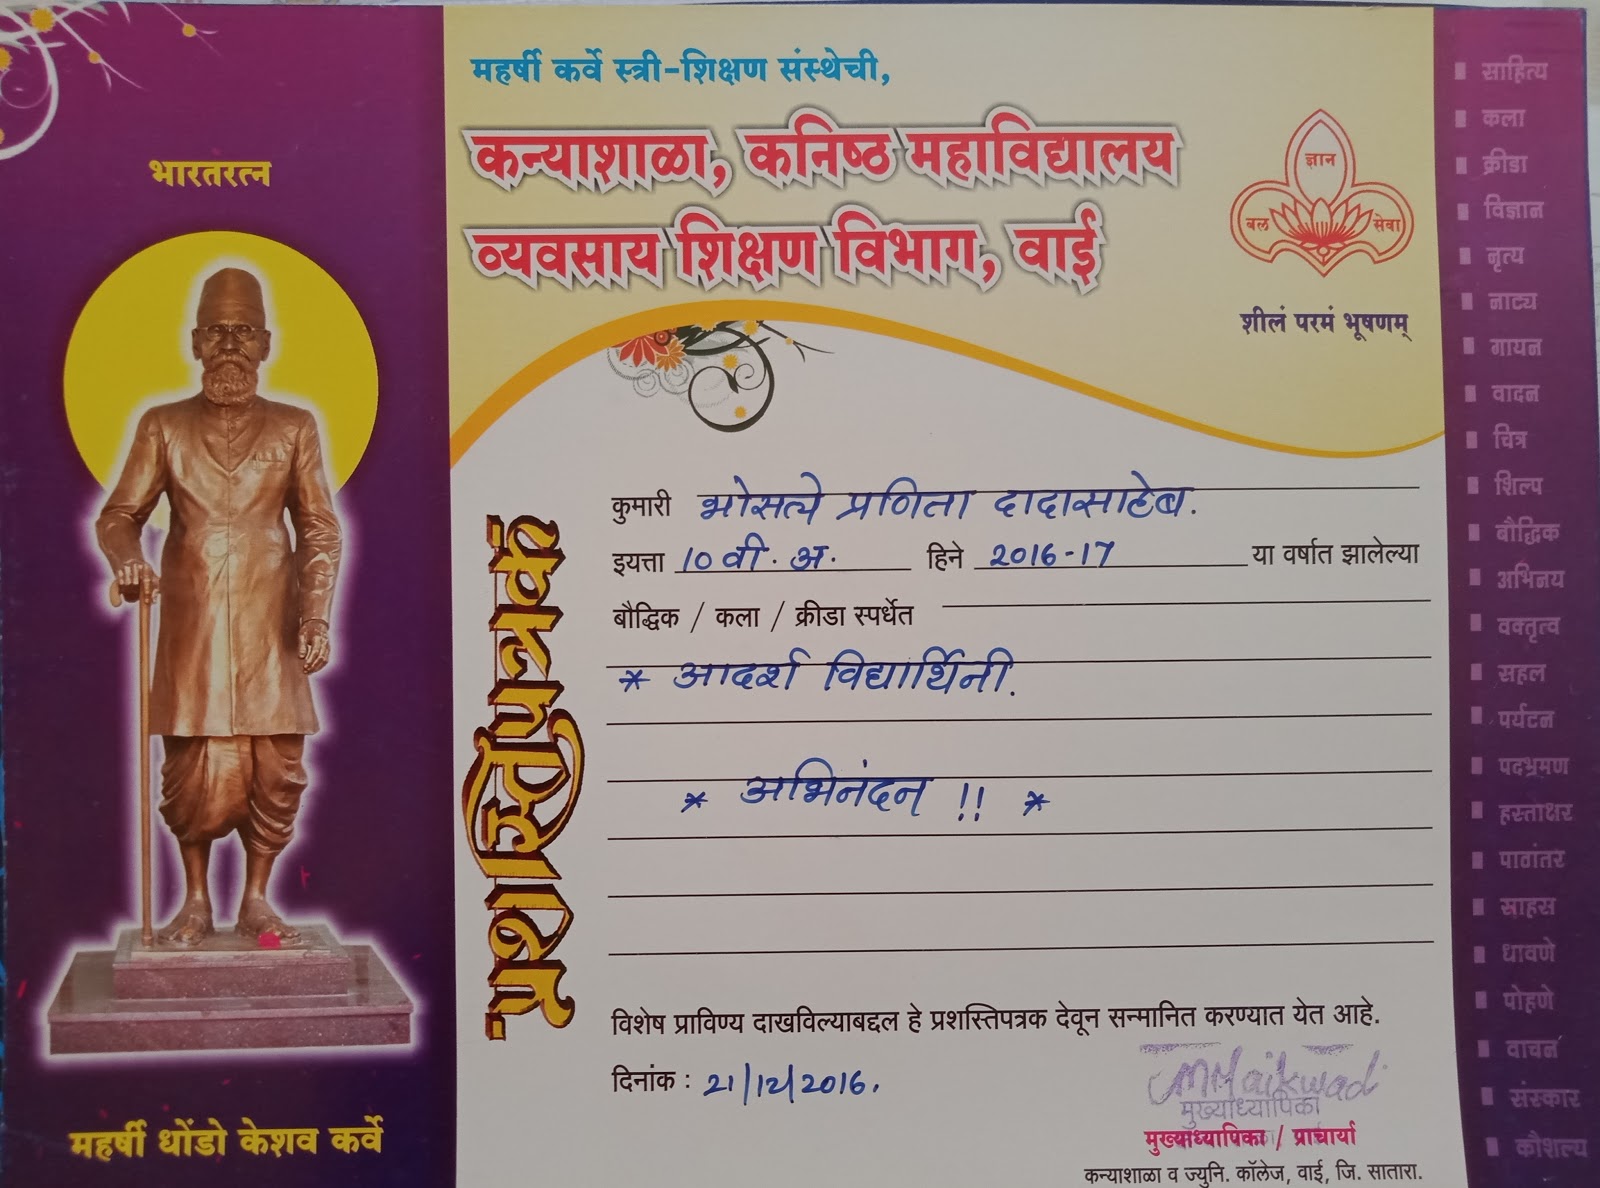 भारतरत्न
महर्षी धोंडो केशव कर्वे
महर्षी कर्वे स्त्री-शिक्षण संस्थेची,
कन्याशाळा, कनिष्ठ महाविद्यालय
व्यवसाय शिक्षण विभाग, वाई
ज्ञान
बल सेवा
शीलं परमं भूषणम्
प्रशस्तिपत्रक
कुमारी भोसले प्रणिता दादासाहेब.
इयत्ता 10 वी. अ. हिने 2016-17 या वर्षात झालेल्या
बौद्धिक / कला / क्रीडा स्पर्धेत
* आदर्श विद्यार्थिनी.
* अभिनंदन !! *
विशेष प्राविण्य दाखविल्याबद्दल हे प्रशस्तिपत्रक देवून सन्मानित करण्यात येत आहे.
दिनांक : 21/12/2016.
मुख्याध्यापिका
मुख्याध्यापिका / प्राचार्या
कन्याशाळा व ज्युनि. कॉलेज, वाई, जि. सातारा.
साहित्य
कला
क्रीडा
विज्ञान
नृत्य
नाट्य
गायन
वादन
चित्र
शिल्प
बौद्धिक
अभिनय
वक्तृत्व
सहल
पर्यटन
पदभ्रमण
हस्ताक्षर
पाठांतर
साहस
धावणे
पोहणे
वाचन
संस्कार
कौशल्य